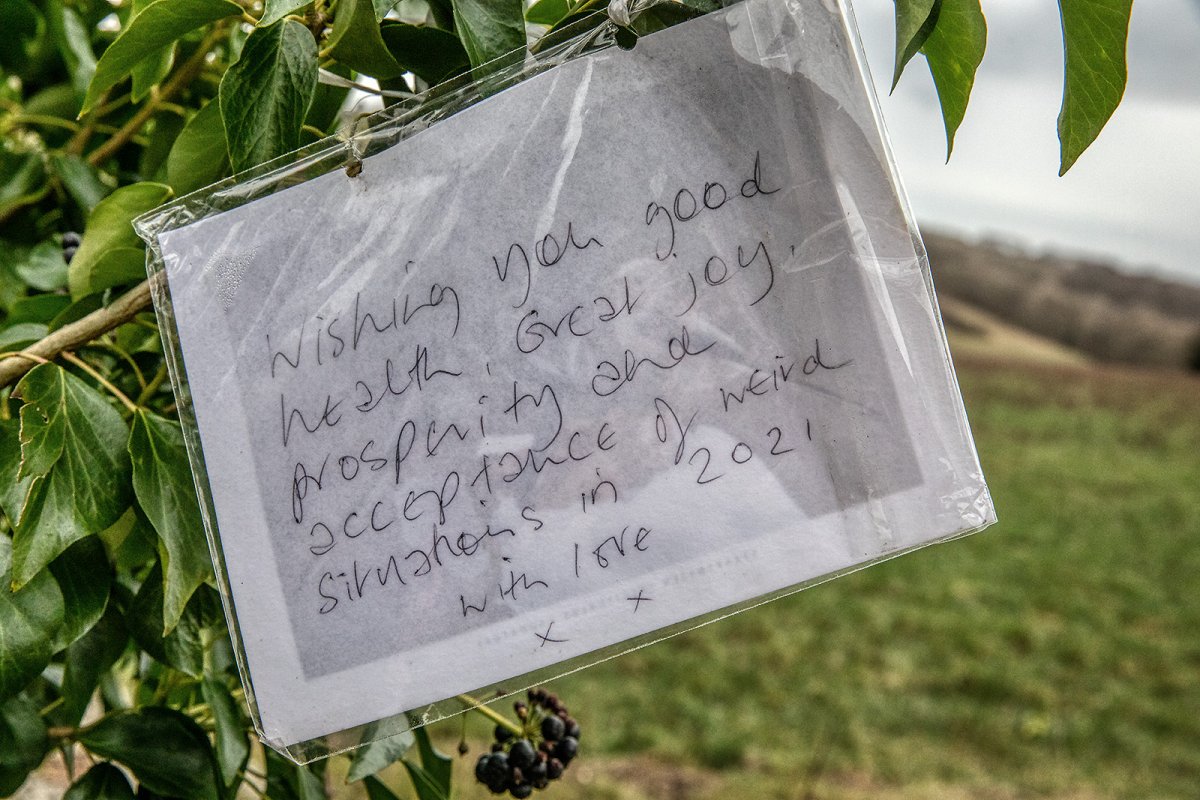 Wishing you good
health, Great joy,
prosperity and
acceptance of weird
situations in 2021
with love
x x